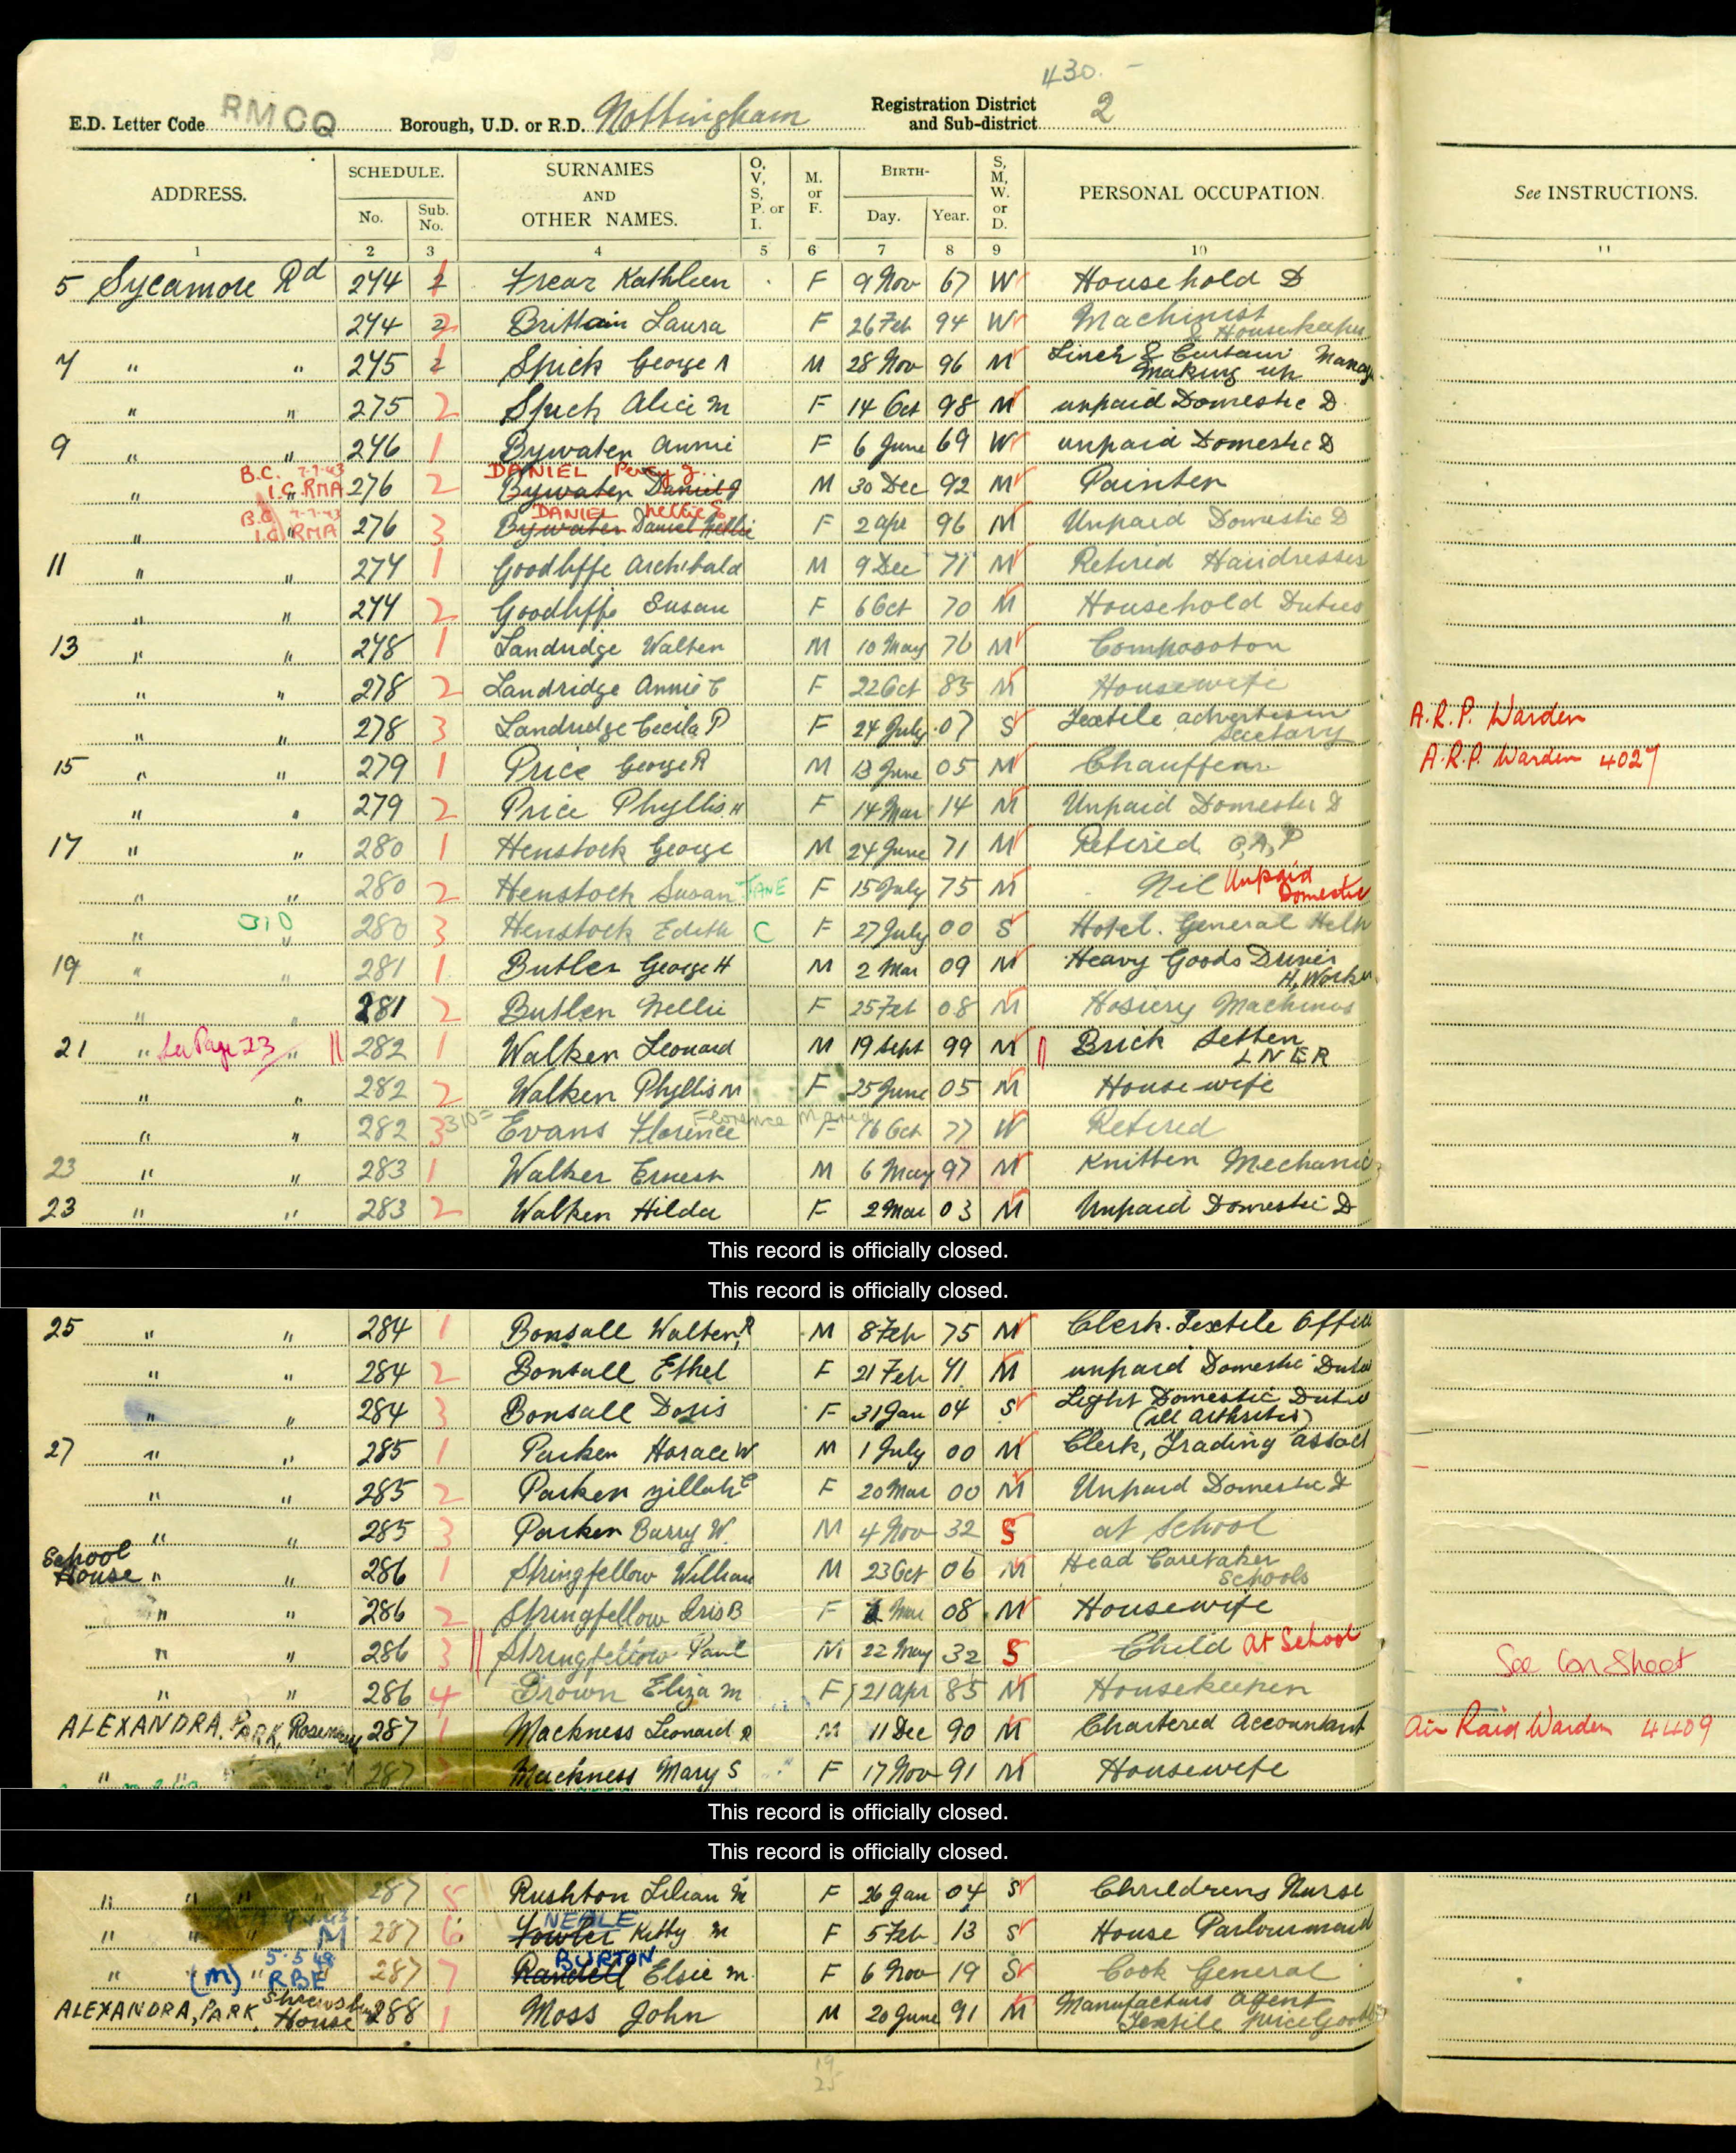 430. -
E.D. Letter Code RMCQ Borough, U.D. or R.D. Nottingham Registration District and Sub-district 2
ADDRESS. SCHEDULE. No. Sub. No. SURNAMES AND OTHER NAMES. O, V, S, P. or I. M. or F. BIRTH- Day. Year. S, M, W. or D. PERSONAL OCCUPATION. See INSTRUCTIONS.
1 2 3 4 5 6 7 8 9 10 11
5 Sycamore Rd 274 1 Frear Kathleen F 9 Nov 67 W Household D
274 2 Brittain Laura F 26 Feb 94 W Machinist & Housekeeper
7 " " 275 1 Spick George A M 28 Nov 96 M Linen & Curtain Making up Manag
" " 275 2 Spick Alice M F 14 Oct 98 M unpaid Domestic D
9 " " 276 1 Bywater Annie F 6 June 69 W unpaid Domestic D
B.C. 7-7-43 DANIEL Percy J.
" I.G. RMA 276 2 Bywater Daniel J M 30 Dec 92 M Painter
B.C. 7-7-43 DANIEL Nellie E
" I.G. RMA 276 3 Bywater Daniel Nellie F 2 Apr 96 M Unpaid Domestic D
11 " " 277 1 Goodliffe Archibald M 9 Dec 71 M Retired Hairdresser
" " 277 2 Goodliffe Susan F 6 Oct 70 M Household Duties
13 " " 278 1 Landridge Walter M 10 May 76 M Compositor
" " 278 2 Landridge Annie E F 22 Oct 85 M Housewife
" " 278 3 Landridge Cecila P F 24 July 07 S Textile advertisin Secetary A.R.P. Warden
15 " " 279 1 Price George R M 13 June 05 M Chauffeur A.R.P. Warden 4027
" " 279 2 Price Phyllis H F 14 Mar 14 M Unpaid Domestic D
17 " " 280 1 Henstock George M 24 June 71 M Retired O,A,P
" " 280 2 Henstock Susan JANE F 15 July 75 M Nil Unpaid Domestic
" OIO " 280 3 Henstock Edith C F 27 July 00 S Hotel. General Help
19 " " 281 1 Butler George H M 2 Mar 09 M Heavy Goods Driver H, Worker
" " 281 2 Butler Nellie F 25 Feb 08 M Hosiery Machinist
21 " See Page 23 " 282 1 Walker Leonard M 19 Sept 99 M Brick Setter LNER
" " 282 2 Walker Phyllis M F 25 June 05 M Housewife
Florence Maria
" " 282 3 310= Evans Florence F 16 Oct 77 W Retired
23 " " 283 1 Walker Ernest M 6 May 97 M Knitter Mechanic
23 " " 283 2 Walker Hilda F 2 Mar 03 M Unpaid Domestic D
This record is officially closed.
This record is officially closed.
25 " " 284 1 Bonsall Walter R M 8 Feb 75 M Clerk. Textile Office
" " 284 2 Bonsall Ethel F 21 Feb 71 M unpaid Domestic Duties
" " 284 3 Bonsall Doris F 31 Jan 04 S Light Domestic Duties (ill Arthritis)
27 " " 285 1 Parker Horace W M 1 July 00 M Clerk, Trading Assoct
" " 285 2 Parker Zillah E F 20 Mar 00 M Unpaid Domestic D
" " 285 3 Parker Barry W. M 4 Nov 32 S at School
School House " " 286 1 Stringfellow William M 23 Oct 06 M Head Caretaker Schools
" " 286 2 Stringfellow Iris B F Mar 08 M Housewife
" " 286 3 Stringfellow Paul M 22 May 32 S Child At School See Con Sheet
" " 286 4 Brown Eliza M F 21 Apr 85 M Housekeeper
ALEXANDRA, PARK, Rosemary 287 1 Mackness Leonard R M 11 Dec 90 M Chartered Accountant Air Raid Warden 4409
" " 287 2 Mackness Mary S F 17 Nov 91 M Housewife
This record is officially closed.
This record is officially closed.
" " " " 287 5 Rushton Lilian M F 26 Jan 04 S Childrens Nurse
NEALE
" " " M 287 6 Fowler Kitty M F 5 Feb 13 S House Parlourmaid
5.5.48 BURTON
" (M) " RBE 287 7 Randell Elsie M. F 6 Nov 19 S Cook General
ALEXANDRA, PARK, Shrewsbury House 288 1 Moss John M 20 June 91 M Manufacturs Agent Textile Piece Goods
19
25